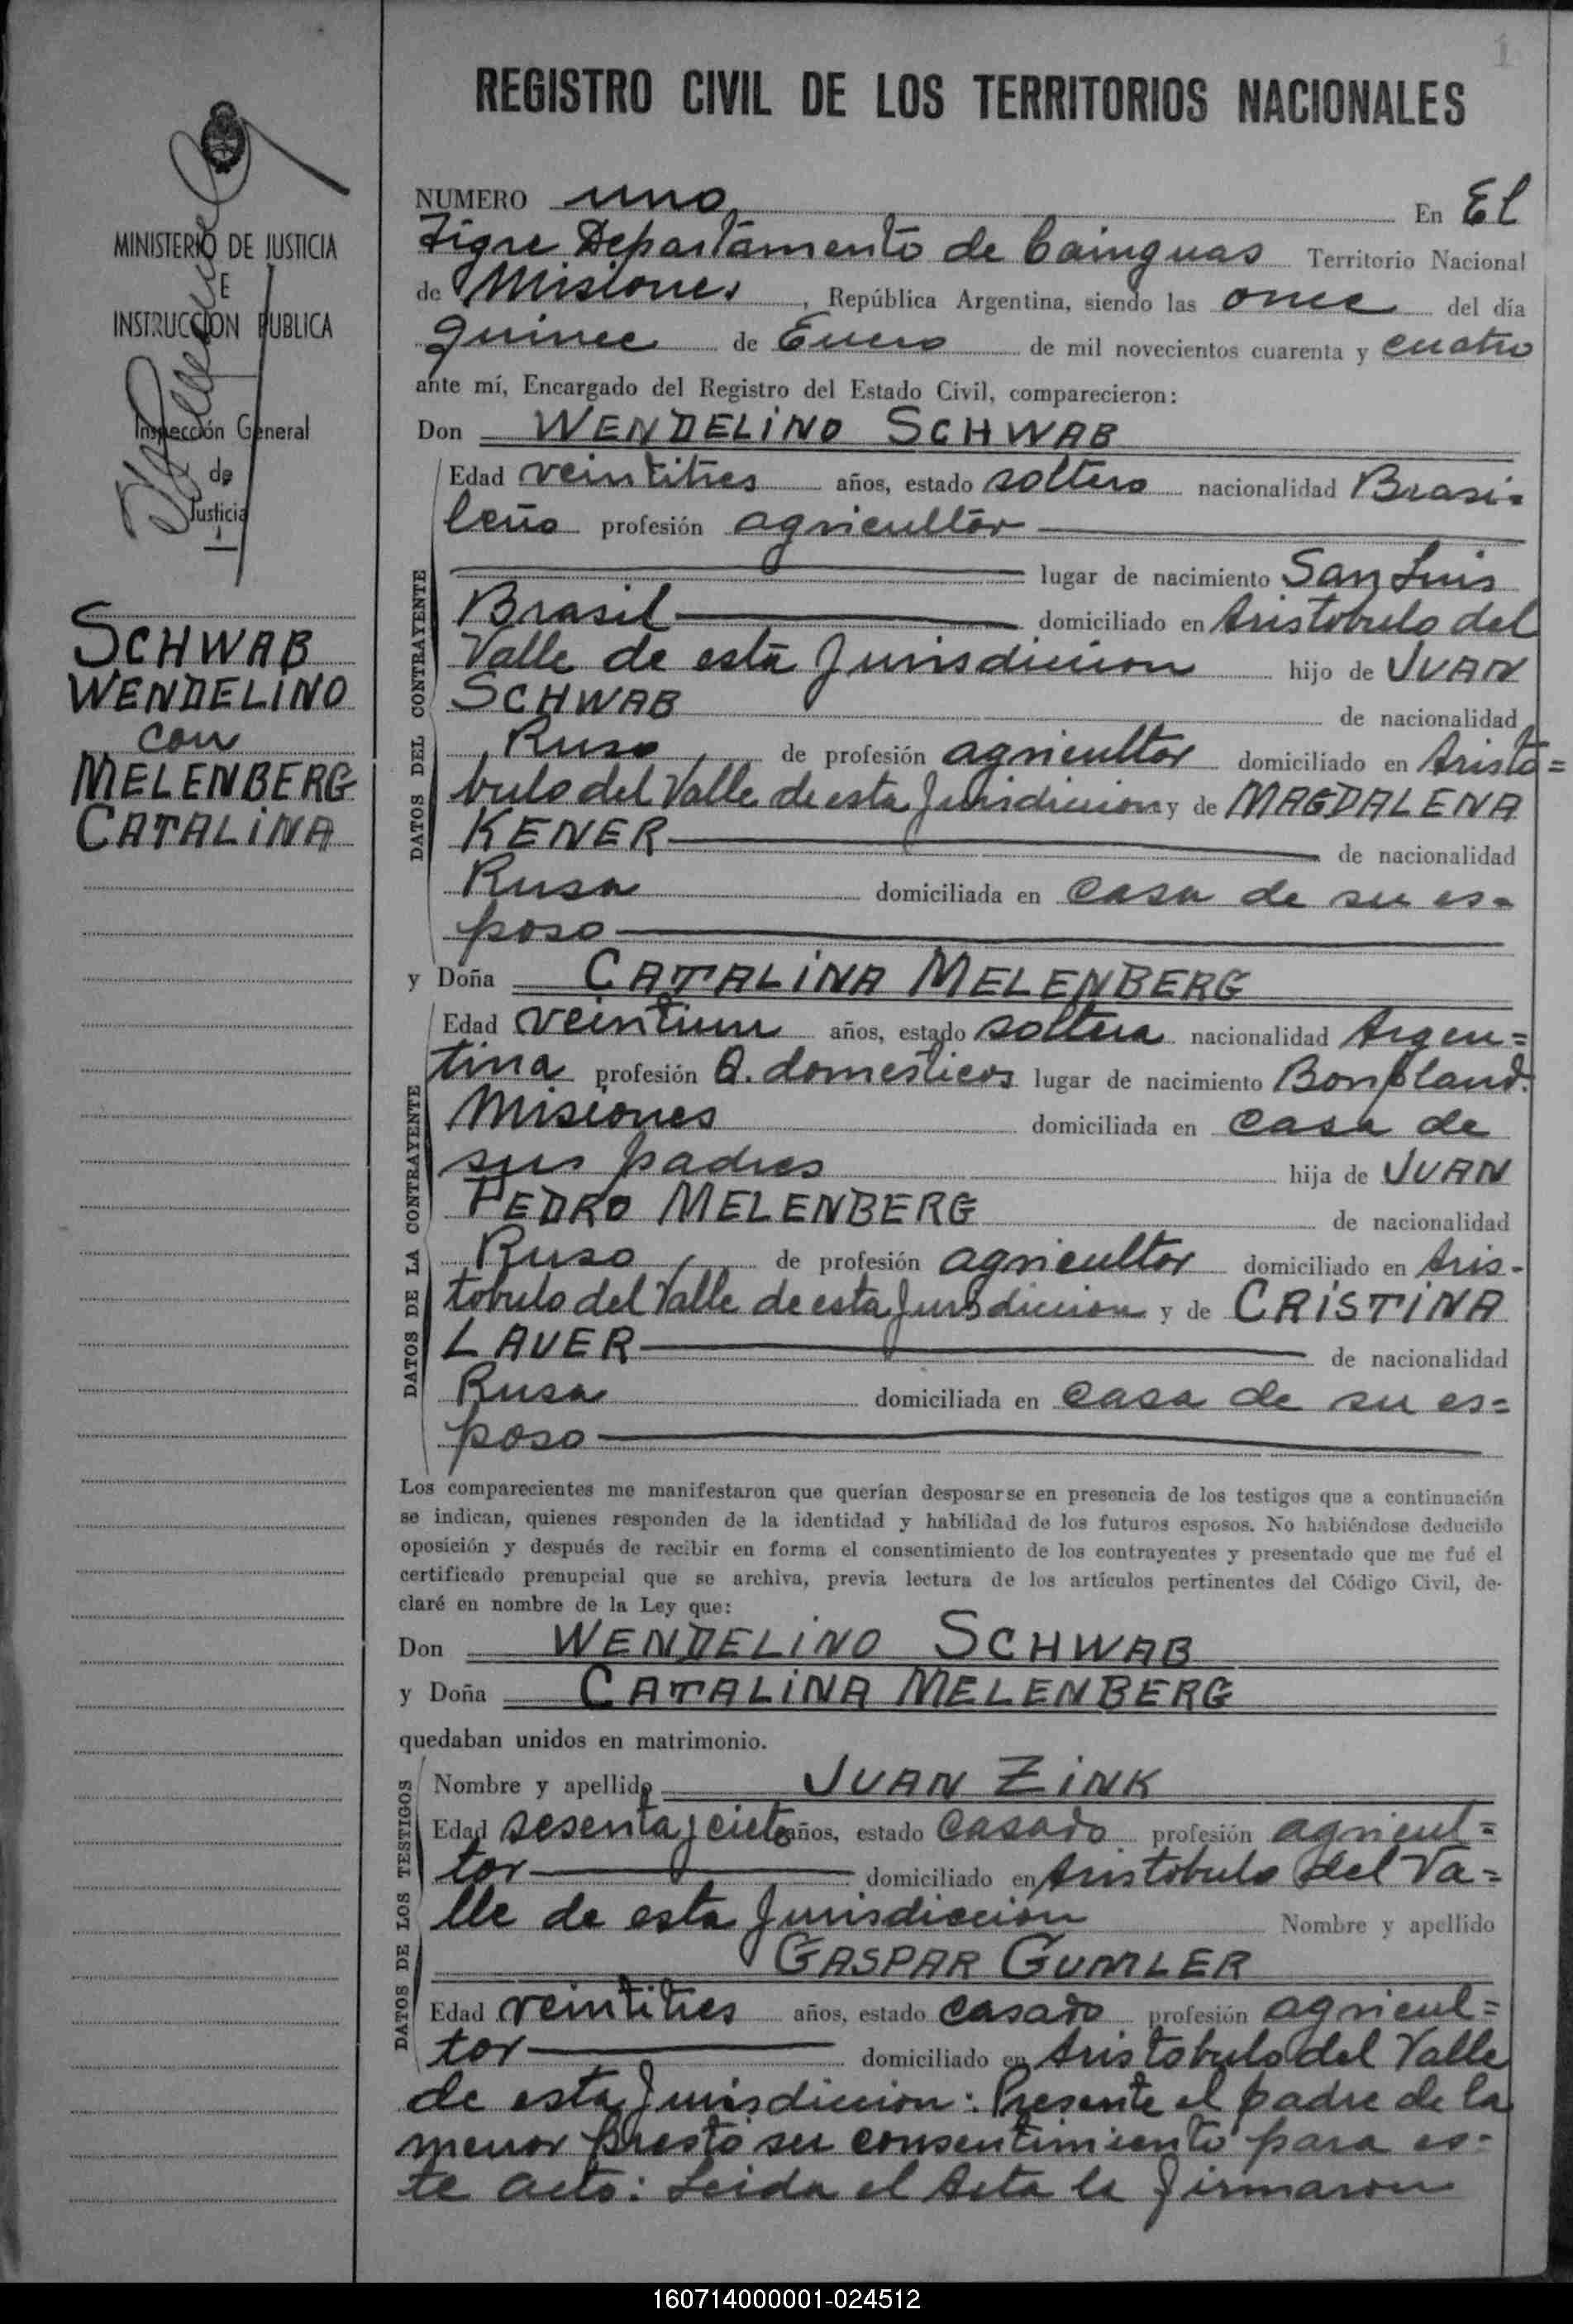 1
REGISTRO CIVIL DE LOS TERRITORIOS NACIONALES
MINISTERIO DE JUSTICIA
E
INSTRUCCION PUBLICA
Inspección General
de
Justicia
SCHWAB
WENDELINO
con
MELENBERG
CATALINA
NUMERO uno En El
Tigre Departamento de Cainguas Territorio Nacional
de Misiones, República Argentina, siendo las once del día
quince de Enero de mil novecientos cuarenta y cuatro
ante mí, Encargado del Registro del Estado Civil, comparecieron:
Don WENDELINO SCHWAB
DATOS DEL CONTRAYENTE
Edad veintitres años, estado soltero nacionalidad Brasi=
leño profesión agricultor
lugar de nacimiento San Luis
Brasil domiciliado en Aristobulo del
Valle de esta Jurisdiccion hijo de JUAN
SCHWAB de nacionalidad
Ruso de profesión agricultor domiciliado en Aristo=
bulo del Valle de esta Jurisdiccion y de MAGDALENA
KENER de nacionalidad
Rusa domiciliada en casa de su es=
poso
y Doña CATALINA MELENBERG
DATOS DE LA CONTRAYENTE
Edad veintiun años, estado soltera nacionalidad Argen=
tina profesión Q. domesticos lugar de nacimiento Bonpland.
Misiones domiciliada en casa de
sus padres hija de JUAN
PEDRO MELENBERG de nacionalidad
Ruso, de profesión agricultor domiciliado en Aris-
tobulo del Valle de esta Jurisdiccion y de CRISTINA
LAUER de nacionalidad
Rusa domiciliada en casa de su es=
poso
Los comparecientes me manifestaron que querían desposarse en presencia de los testigos que a continuación
se indican, quienes responden de la identidad y habilidad de los futuros esposos. No habiéndose deducido
oposición y después de recibir en forma el consentimiento de los contrayentes y presentado que me fué el
certificado prenupcial que se archiva, previa lectura de los artículos pertinentes del Código Civil, de-
claré en nombre de la Ley que:
Don WENDELINO SCHWAB
y Doña CATALINA MELENBERG
quedaban unidos en matrimonio.
DATOS DE LOS TESTIGOS
Nombre y apellido JUAN ZINK
Edad sesenta y ciete años, estado casado profesión agricul=
tor domiciliado en Aristobulo del Va=
lle de esta Jurisdiccion Nombre y apellido
GASPAR GUMLER
Edad veintitres años, estado casado profesión agricul=
tor domiciliado en Aristobulo del Valle
de esta Jurisdiccion: Presente el padre de la
menor prestó su consentimiento para es=
te acto: Leida el Acta la firmaron
160714000001-024512